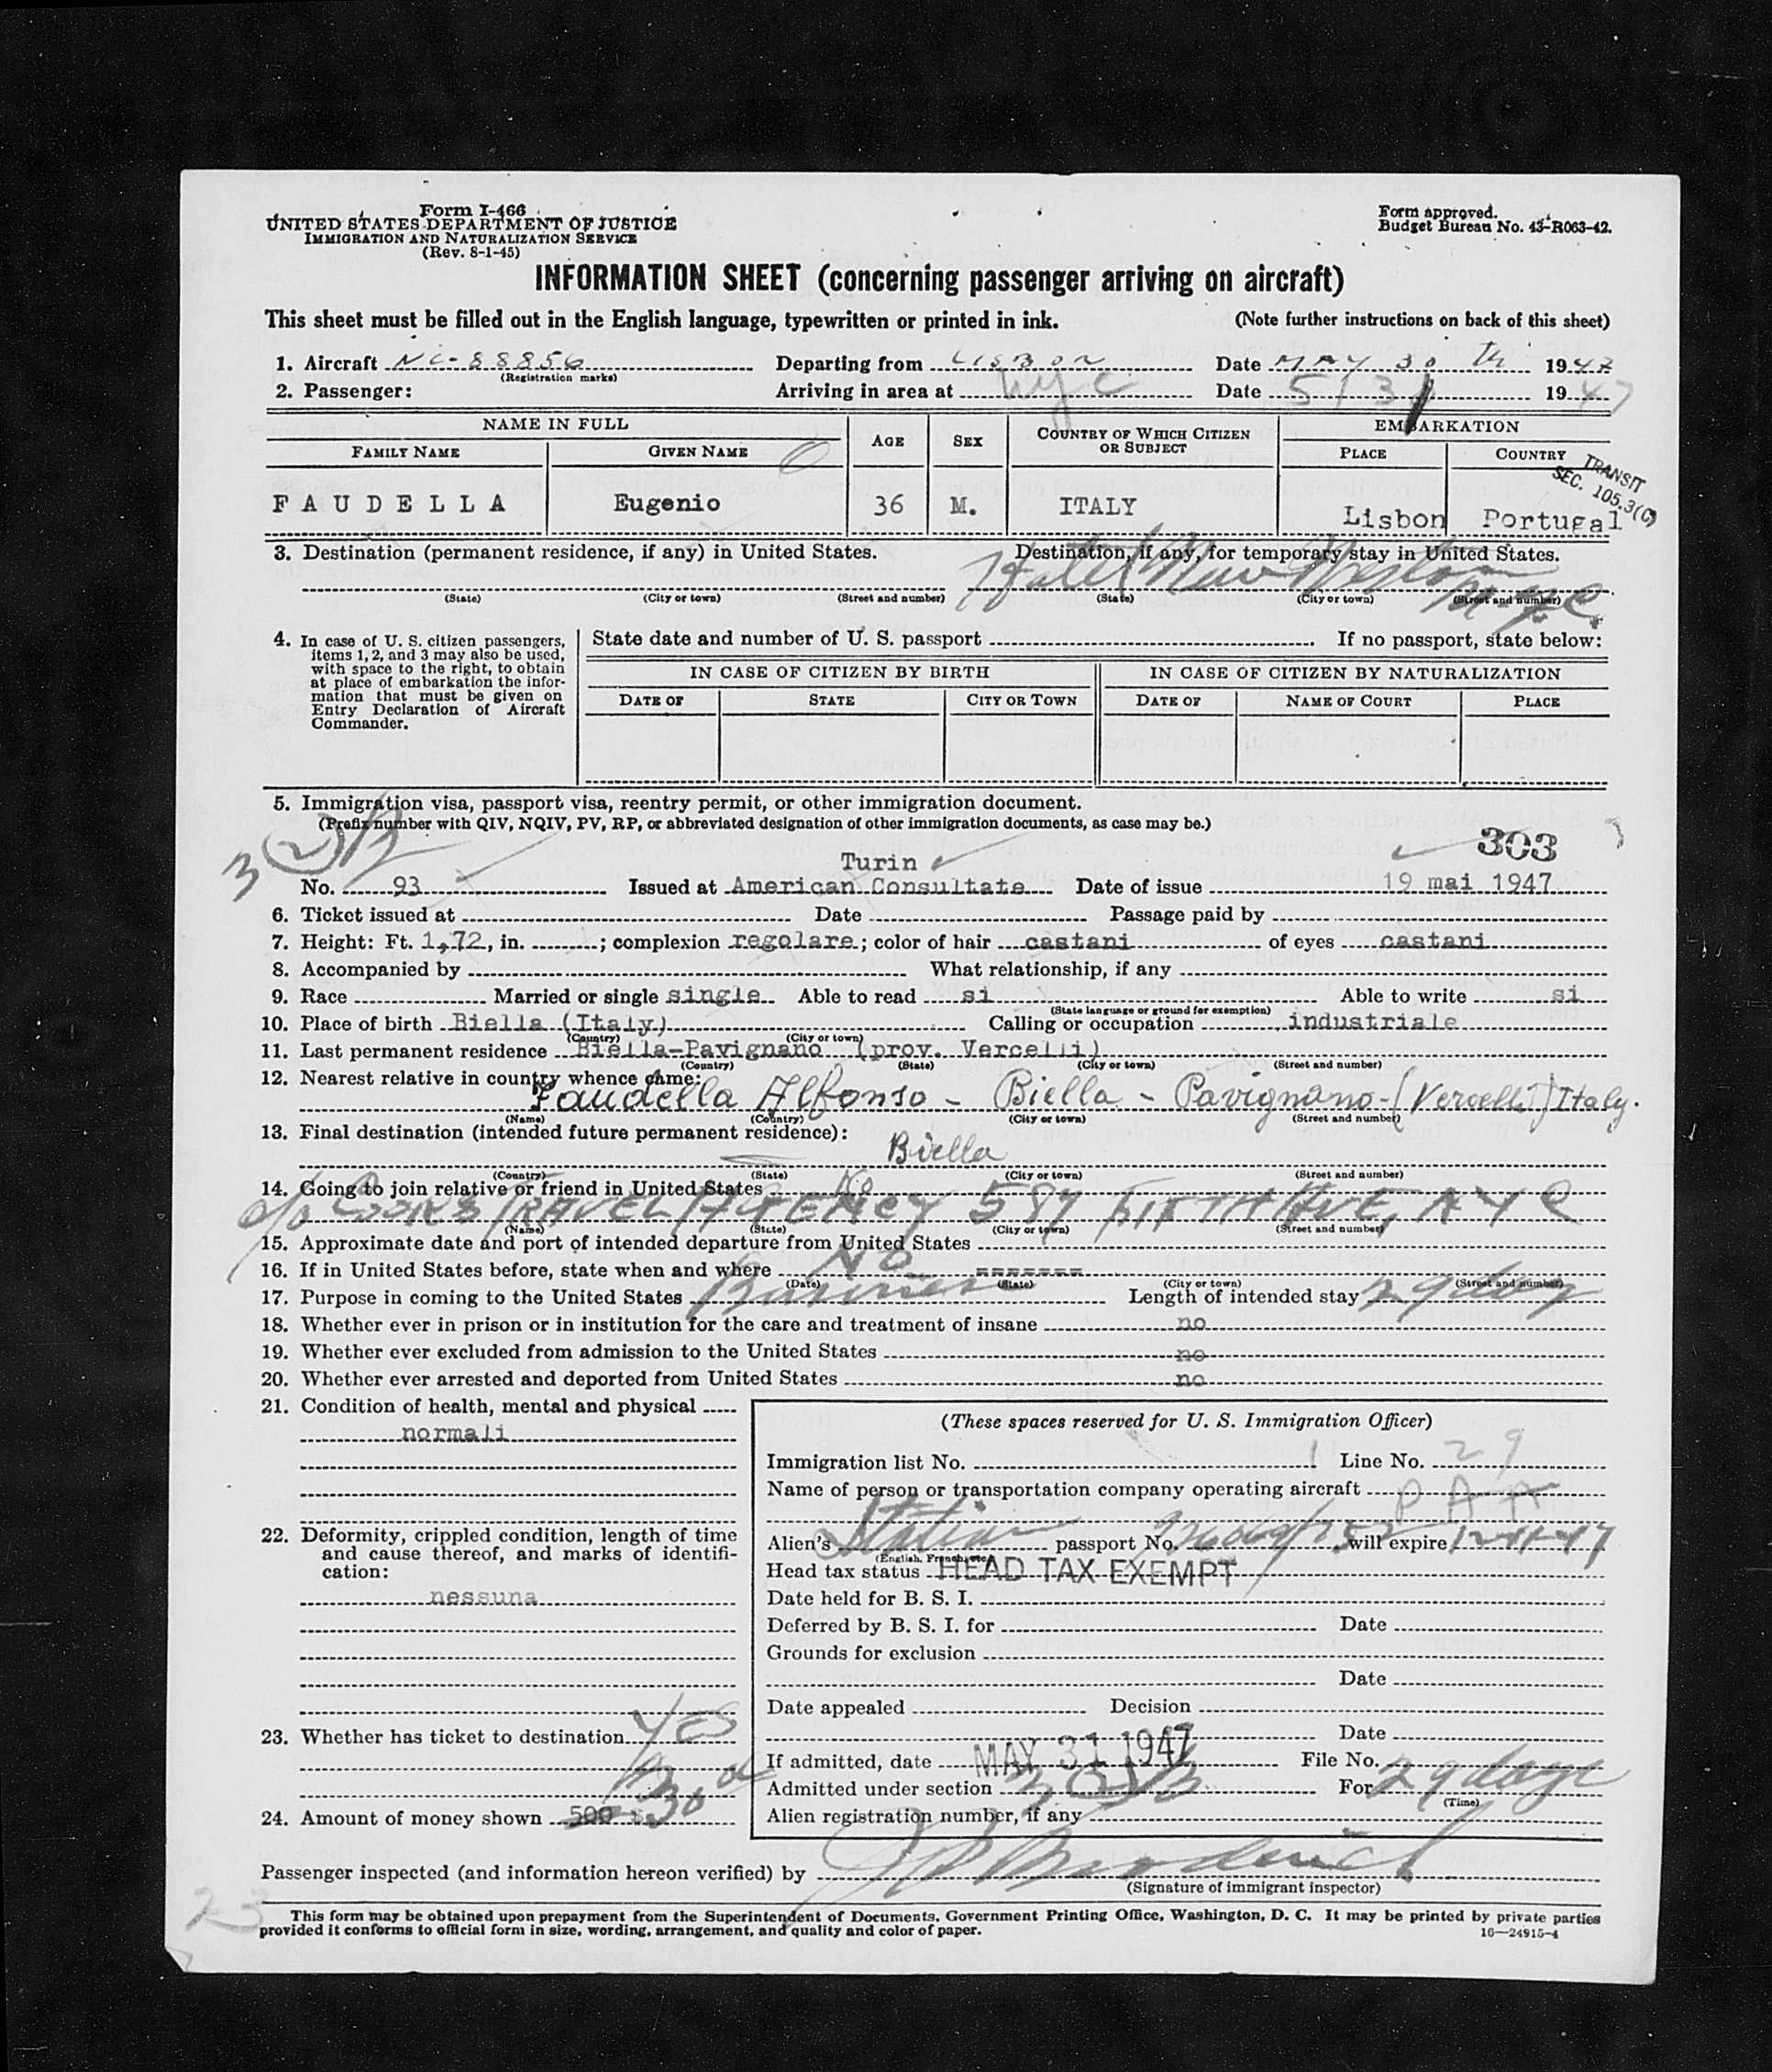 Form I-466
UNITED STATES DEPARTMENT OF JUSTICE
IMMIGRATION AND NATURALIZATION SERVICE
(Rev. 8-1-45)
Form approved.
Budget Bureau No. 43-R063-42.
INFORMATION SHEET (concerning passenger arriving on aircraft)
This sheet must be filled out in the English language, typewritten or printed in ink. (Note further instructions on back of this sheet)
1. Aircraft NC-88856 Departing from LISBON Date MAY 30 th 1947
(Registration marks)
2. Passenger: Arriving in area at nyc Date 5/31 1947
NAME IN FULL AGE SEX COUNTRY OF WHICH CITIZEN OR SUBJECT EMBARKATION
FAMILY NAME GIVEN NAME PLACE COUNTRY
TRANSIT
SEC. 105.3(C)
FAUDELLA Eugenio 36 M. ITALY Lisbon Portugal
3. Destination (permanent residence, if any) in United States. Destination, if any, for temporary stay in United States.
Hotel New Weston nyc
(State) (City or town) (Street and number) (State) (City or town) (Street and number)
4. In case of U. S. citizen passengers, items 1, 2, and 3 may also be used, with space to the right, to obtain at place of embarkation the information that must be given on Entry Declaration of Aircraft Commander.
State date and number of U. S. passport If no passport, state below:
IN CASE OF CITIZEN BY BIRTH IN CASE OF CITIZEN BY NATURALIZATION
DATE OF STATE CITY OR TOWN DATE OF NAME OF COURT PLACE
5. Immigration visa, passport visa, reentry permit, or other immigration document.
(Prefix number with QIV, NQIV, PV, RP, or abbreviated designation of other immigration documents, as case may be.)
3(2)
303
Turin
No. 93 Issued at American Consultate Date of issue 19 mai 1947
6. Ticket issued at Date Passage paid by
7. Height: Ft. 1,72, in. ; complexion regolare; color of hair castani of eyes castani
8. Accompanied by What relationship, if any
9. Race Married or single single Able to read si Able to write si
(State language or ground for exemption)
10. Place of birth Biella (Italy) Calling or occupation industriale
(Country) (City or town)
11. Last permanent residence Biella-Pavignano (prov. Vercelli)
(Country) (State) (City or town) (Street and number)
12. Nearest relative in country whence came:
Faudella Alfonso - Biella - Pavignano - (Vercelli) Italy.
(Name) (Country) (City or town) (Street and number)
13. Final destination (intended future permanent residence):
Biella
(Country) (State) (City or town) (Street and number)
14. Going to join relative or friend in United States No
c/o COOKS TRAVEL AGENCY 587 FIFTH AVE, NYC
(Name) (State) (City or town) (Street and number)
15. Approximate date and port of intended departure from United States
16. If in United States before, state when and where NO =======
(Date) (State) (City or town) (Street and number)
17. Purpose in coming to the United States Business Length of intended stay 29 days
18. Whether ever in prison or in institution for the care and treatment of insane no
19. Whether ever excluded from admission to the United States no
20. Whether ever arrested and deported from United States no
21. Condition of health, mental and physical
normali
22. Deformity, crippled condition, length of time and cause thereof, and marks of identification:
nessuna
23. Whether has ticket to destination YES
24. Amount of money shown 500 30
(These spaces reserved for U. S. Immigration Officer)
Immigration list No. 1 Line No. 29
Name of person or transportation company operating aircraft PAA
Alien's Italian passport No. will expire
(English, French, etc.)
Head tax status HEAD TAX EXEMPT
Date held for B. S. I.
Deferred by B. S. I. for Date
Grounds for exclusion
Date
Date appealed Decision
Date
If admitted, date MAY 31 1947 File No.
Admitted under section 3(2) For 29 days
(Time)
Alien registration number, if any
Passenger inspected (and information hereon verified) by
(Signature of immigrant inspector)
23
This form may be obtained upon prepayment from the Superintendent of Documents, Government Printing Office, Washington, D. C. It may be printed by private parties
provided it conforms to official form in size, wording, arrangement, and quality and color of paper.
16—24915-4